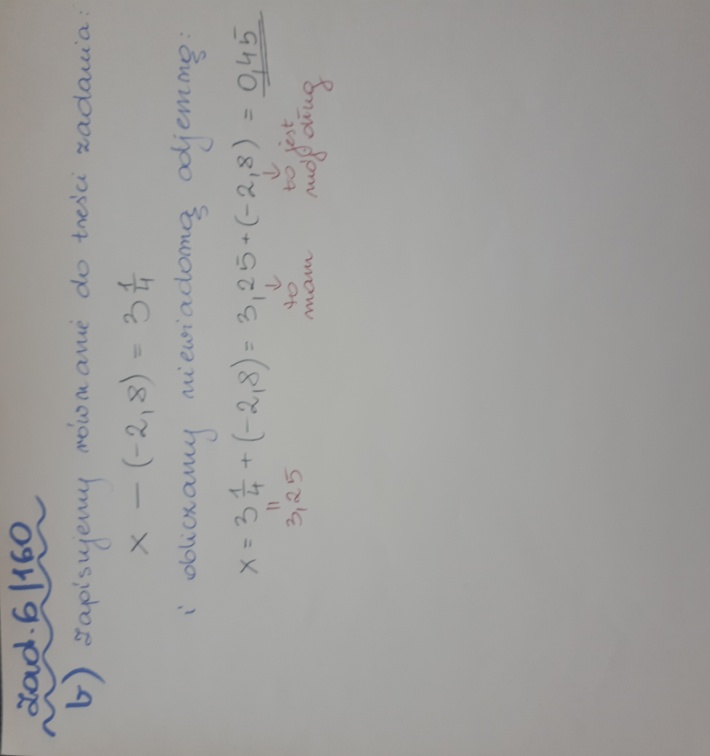 Zad. 6/160
b) Zapisujemy równanie do treści zadania:
x — (-2,8) = 3 1/4
i obliczamy niewiadomą odjemną:
x = 3 1/4 + (-2,8) = 3,25 + (-2,8) = 0,45
" ↓ ↓
3,25 to mam to jest mój dług